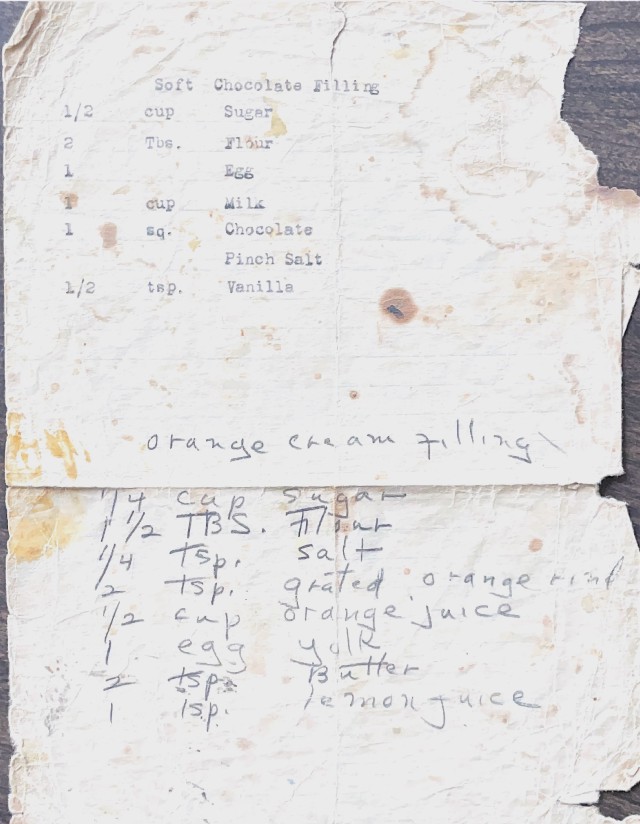 Soft Chocolate Filling
1/2 cup Sugar
2 Tbs. Flour
1 Egg
1 cup Milk
1 sq. Chocolate
Pinch Salt
1/2 tsp. Vanilla
orange cream filling
1/4 cup sugar
1 1/2 TBS. Flour
1/4 Tsp. salt
2 tsp. grated orange rind
1/2 cup orange juice
1 egg yolk
2 tsp. Butter
1 tsp. lemon juice